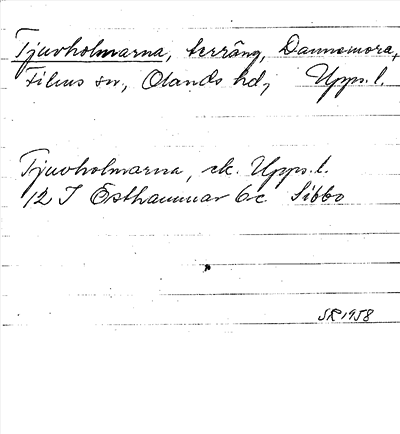 Tjuvholmarna, terräng, Dannemora,
Films sn, Olands hd, Upps. l.
Tjuvholmarna, ek. Upps. l.
12 I Östhammar 6c Sibbo
SR 1958